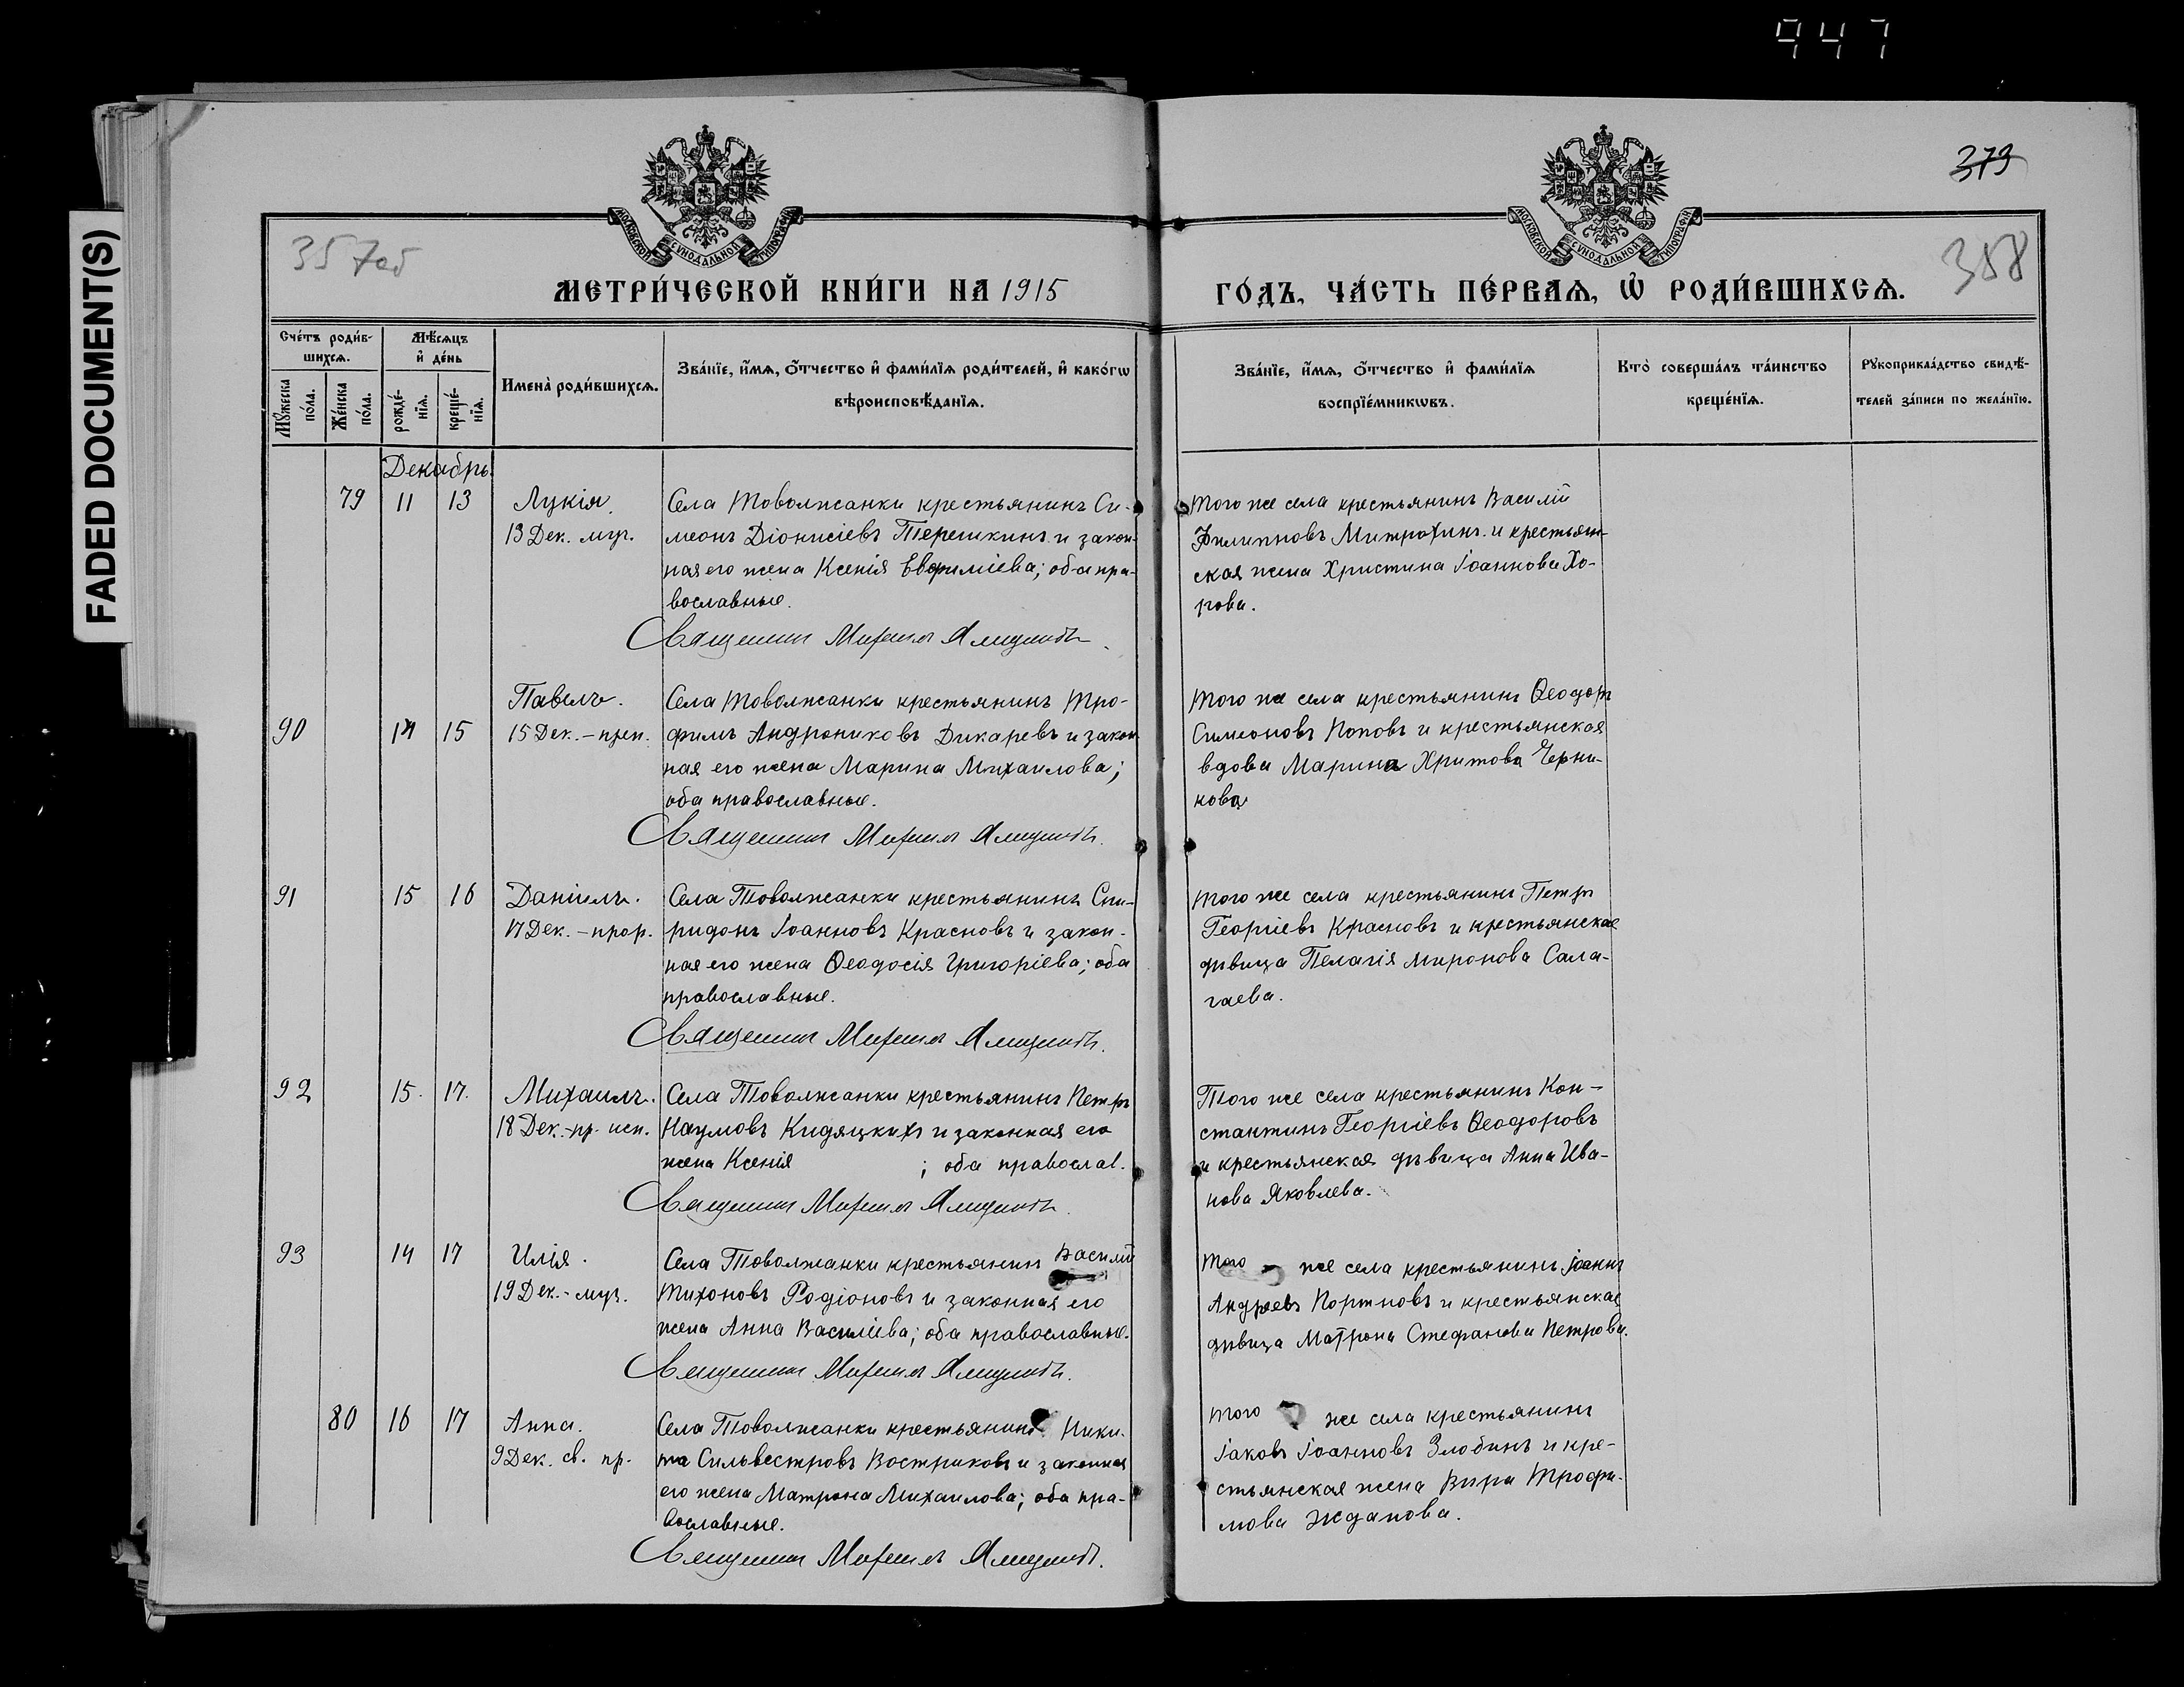 947
FADED DOCUMENT(S)
379
357об
358
МОСКОВСКОЙ СѴНОДАЛЬНОЙ ТИПОГРАФІИ
МОСКОВСКОЙ СѴНОДАЛЬНОЙ ТИПОГРАФІИ
МЕТРИ́ЧЕСКОЙ КНИ́ГИ НА 1915
ГО́ДЪ, ЧА́СТЬ ПЕ́РВАѦ, Ѽ РОДИ́ВШИХСѦ.
Сче́тъ роди́в-
шихсѧ.
Мꙋ́жеска
по́ла.
Же́нска
по́ла.
Мѣ́сѧцъ
и҆ де́нь
рожде́-
нїѧ.
креще́-
нїѧ.
Имена̀ роди́вшихсѧ.
Зва́нїе, и҆́мѧ, ѻ҆́тчество и҆ фами́лїѧ роди́телей, и҆ како́гѡ
вѣроисповѣ́данїѧ.
Зва́нїе, и҆́мѧ, ѻ҆́тчество и҆ фами́лїѧ
воспрїе́мникѡвъ.
Кто̀ соверша́лъ та́инство
креще́нїѧ.
Рꙋкоприкла́дство свидѣ́-
телей за́писи по жела́нїю.
Декабрь.
79 11 13
Лукія.
13 Дек. муч.
Села Товолжанки крестьянинъ Си-
меонъ Діонисіевъ Терешкинъ и закон-
ная его жена Ксенія Евфиміева; оба пра-
вославные.
Священникъ Михаилъ
Того же села крестьянинъ Василій
Филипповъ Митрохинъ и крестьян-
ская жена Христина Іоаннова Хо-
рова.
90 14 15
Павелъ.
15 Дек. – преп.
Села Товолжанки крестьянинъ Тро-
фимъ Андрониковъ Дикаревъ и закон
ная его жена Марина Михаилова;
оба православные.
Священникъ Михаилъ
Того же села крестьянинъ Ѳеодоръ
Симеоновъ Поповъ и крестьянская
вдова Марина Черни-
кова
91 15 16
Даніилъ.
17 Дек. – прор.
Села Товолжанки крестьянинъ Спи-
ридонъ Іоанновъ Красновъ и закон-
ная его жена Ѳеодосія Григоріева; оба
православные.
Священникъ Михаилъ
Того же села крестьянинъ Петръ
Георгіевъ Красновъ и крестьянская
дѣвица Пелагія Миронова Сала-
гаева.
92 15. 17.
Михаилъ.
18 Дек. – пр. исп.
Села Товолжанки крестьянинъ Петръ
Наумовъ Кидяцкихъ и законная его
жена Ксенія ; оба православ.
Священникъ Михаилъ
Того же села крестьянинъ Кон-
стантинъ Георгіевъ Ѳеодоровъ
и крестьянская дѣвица Анна Ива-
нова Яковлева.
93 14 17
Илія.
19 Дек. – муч.
Села Товолжанки крестьянинъ Василій
Тихоновъ Родіоновъ и законная его
жена Анна Василіева; оба православные.
Священникъ Михаилъ
Того же села крестьянинъ Іоаннъ
Андреевъ Портновъ и крестьянская
дѣвица Матрона Стефанова Петрова.
80 16 17
Анна.
9 Дек. св. пр.
Села Товолжанки крестьянинъ Ники-
та Сильвестровъ Востриковъ и законная
его жена Матрона Михаилова; оба пра-
вославные.
Священникъ Михаилъ
Того же села крестьянинъ
Іаковъ Іоанновъ Злобинъ и кре-
стьянская жена Вѣра Трофи-
мова Жданова.